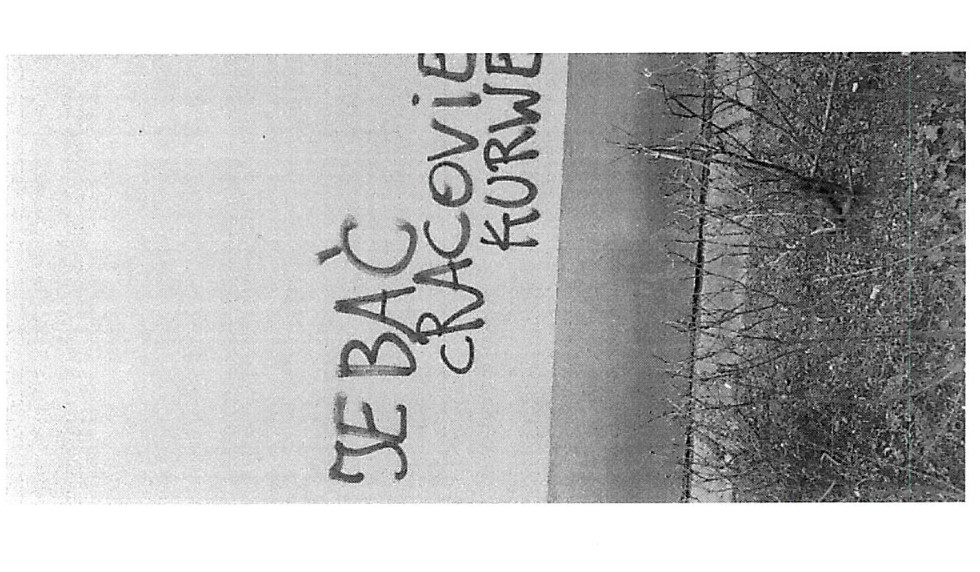 JEBAĆ
CRACOViE
KURWE